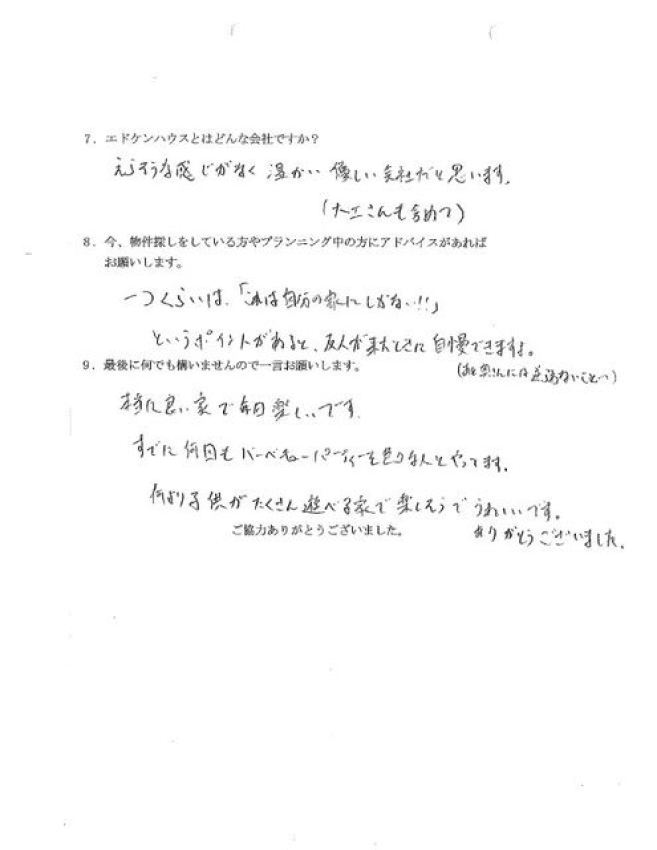 7．エドケンハウスとはどんな会社ですか？
えらそうな感じがなく 温かい 優しい会社だと思います。
(大工さんも含めて)
8．今、物件探しをしている方やプランニング中の方にアドバイスがあれば
お願いします。
一つくらいは、「これは自分の家にしかない!!」
というポイントがあると、友人が来たときに自慢できますよ。
(あと奥さんには逆らないこと…)
9．最後に何でも構いませんので一言お願いします。
本当に良い家で毎日楽しいです。
すでに何回もバーベキューパーティーを色々な人とやってます。
何より子供がたくさん遊べる家で楽しそうでうれしいです。
ありがとうございました。
ご協力ありがとうございました。